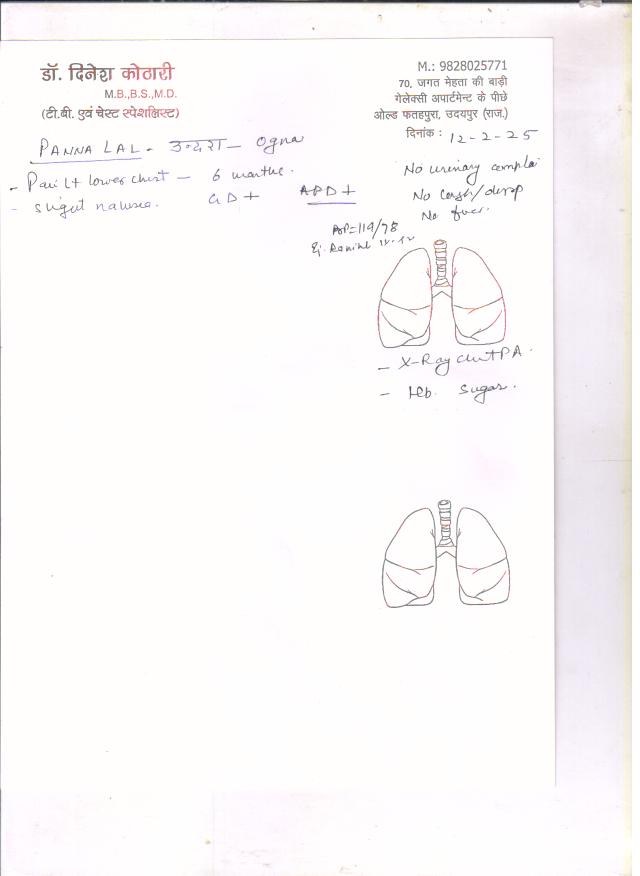 डॉ. दिनेश कोठारी
M.B.,B.S.,M.D.
(टी.बी. एवं चेस्ट स्पेशलिस्ट)
M.: 9828025771
70, जगत मेहता की बाड़ी
गेलेक्सी अपार्टमेन्ट के पीछे
ओल्ड फतहपुरा, उदयपुर (राज.)
दिनांक : 12-2-25
PANNA LAL - उन्दरा - Ogna
- Pain Lt lower chest - 6 months.
- slight nausea. GD + APD +
No urinary complai
No cough/dysp
No fever.
BP=119/78
- X-Ray chest PA.
- Hb. Sugar.